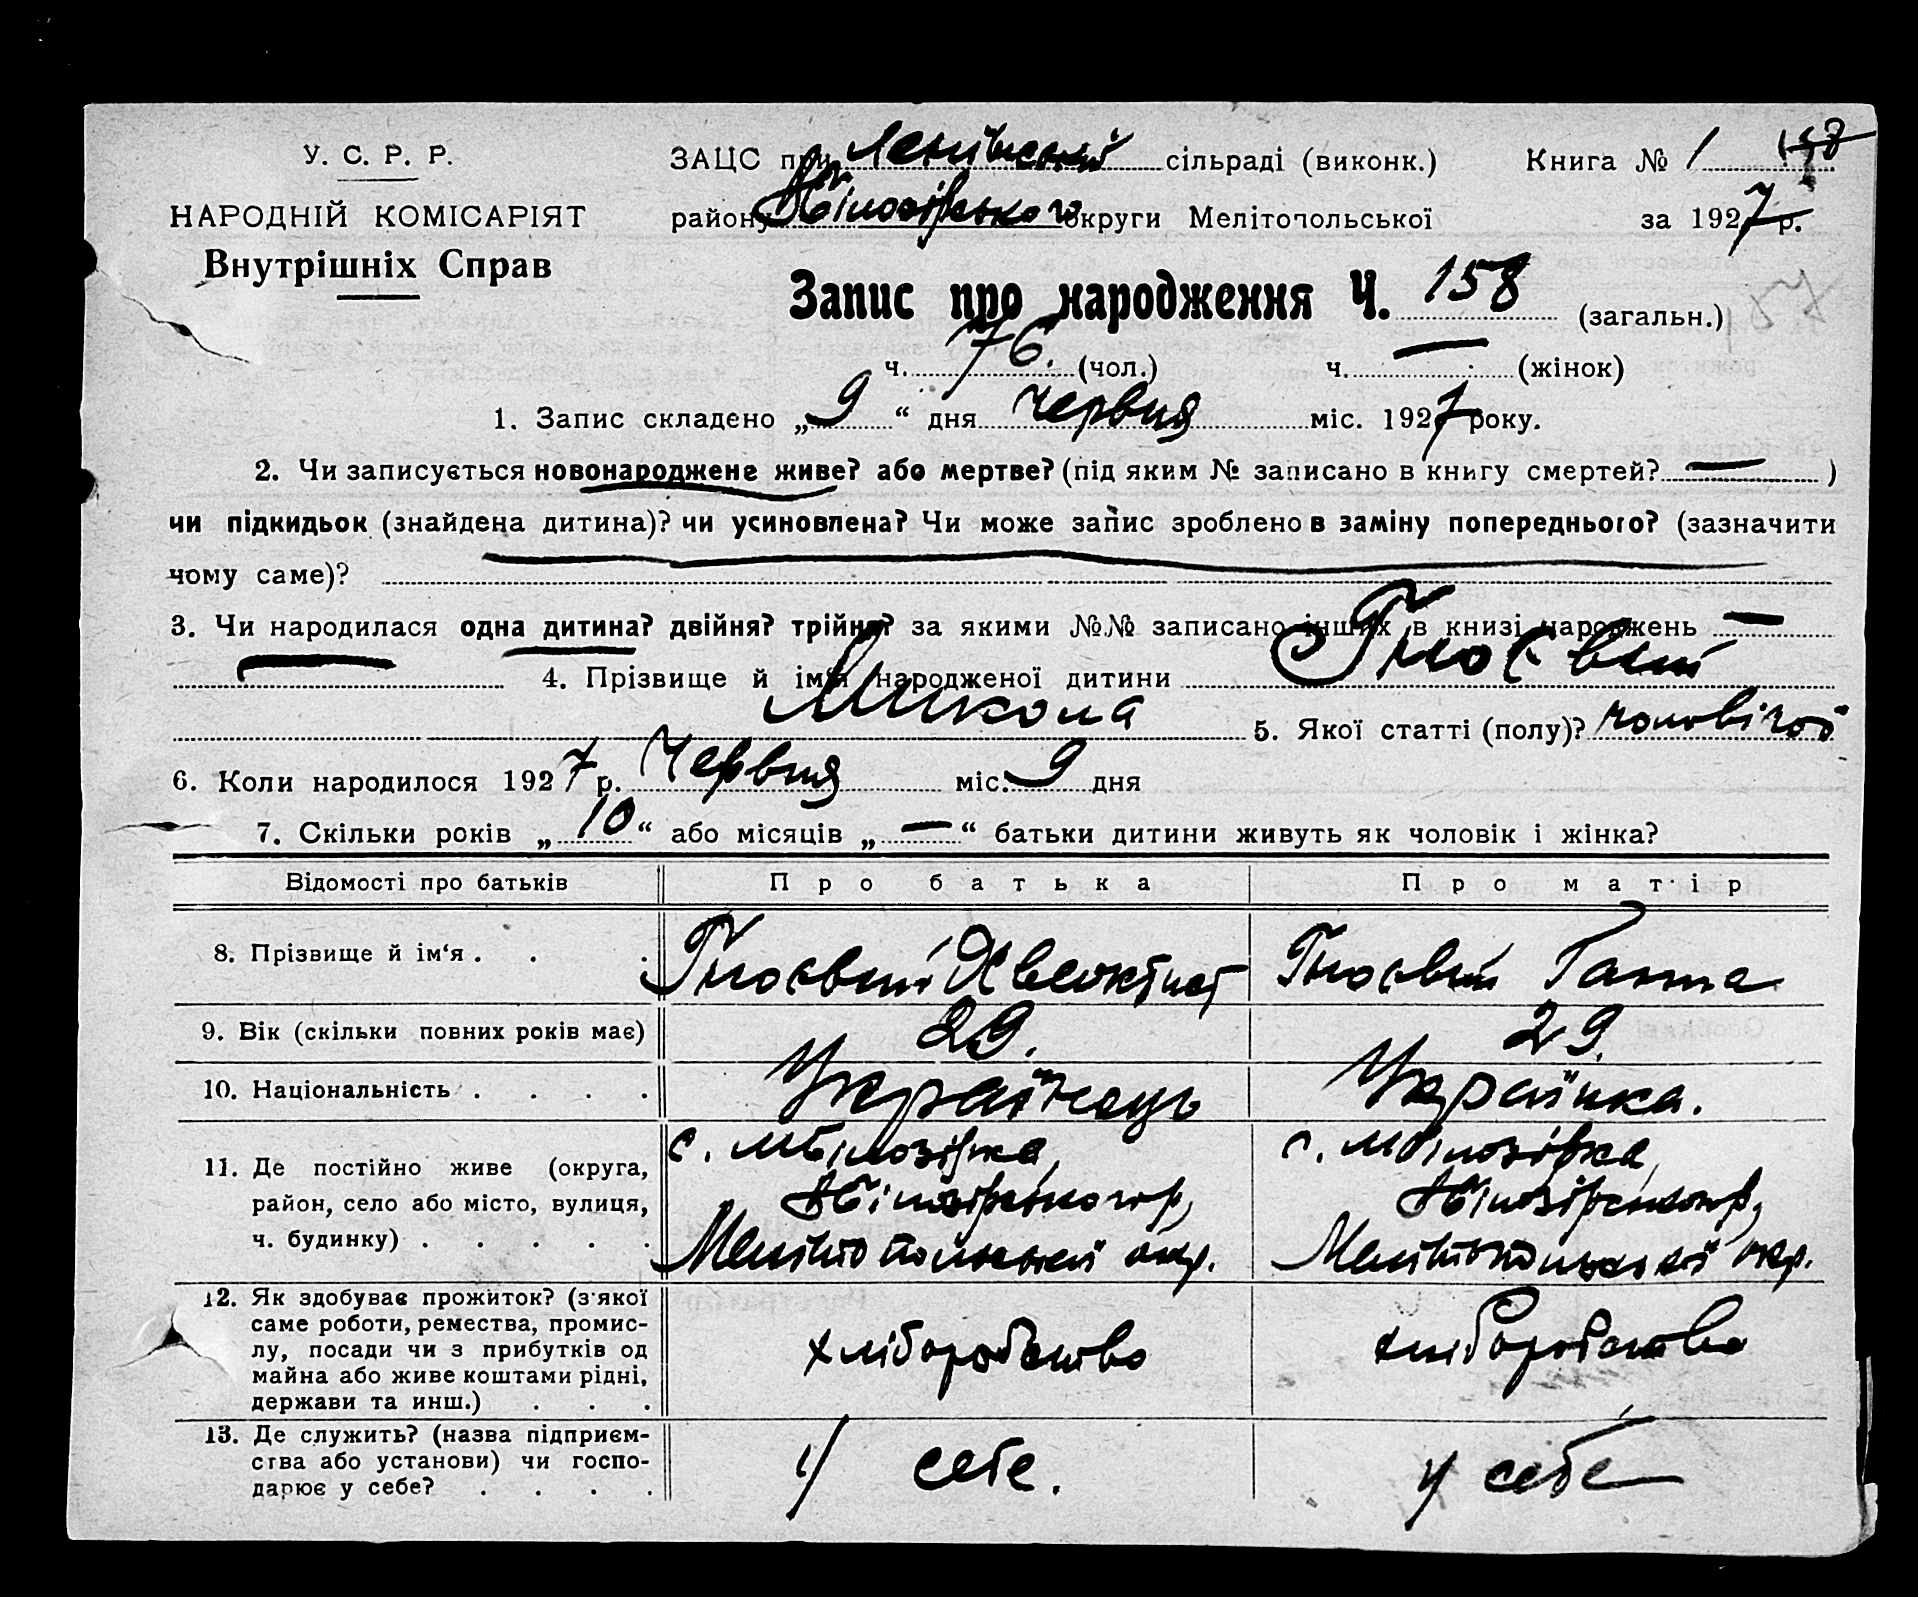 У. С. Р. Р.
НАРОДНІЙ КОМІСАРІЯТ
Внутрішніх Справ
ЗАЦС при Ленінській сільраді (виконк.) Книга № 1 158
району Білозірського округи Мелітопольської за 1927 р.
Запис про народження Ч. 158 (загальн.)
ч. 76. (чол.) ч. — (жінок)
1. Запис складено „9“ дня Червня міс. 1927 року.
2. Чи записується новонароджене живе? або мертве? (під яким № записано в книгу смертей? — )
чи підкидьок (знайдена дитина)? чи усиновлена? Чи може запис зроблено в заміну попереднього? (зазначити
чому саме)?
3. Чи народилася одна дитина? двійня? трійня? за якими №№ записано інших в книзі народжень —
— 4. Прізвище й ім'я народженої дитини Гносвий
Микола 5. Якої статті (полу)? чоловічої
6. Коли народилося 1927 р. Червня міс. 9 дня
7. Скільки років „10“ або місяців „—“ батьки дитини живуть як чоловік і жінка?
Відомості про батьків Про батька Про матір
8. Прізвище й ім‘я . . . Гносвий Хвеоктист Гносвий Ганна
9. Вік (скільки повних років має) 29. 29.
10. Національність . . . . Українець Українка.
11. Де постійно живе (округа, с. Білозірка, с. Білозірка,
район, село або місто, вулиця, Білозірського р, Білозірського р,
ч. будинку) . . . . . Мелітопольської окр. Мелітопольської окр.
12. Як здобуває прожиток? (з'якої
саме роботи, ремества, промис-
лу, посади чи з прибутків од хліборобство хліборобство
майна або живе коштами рідні,
держави та инш.) . . .
13. Де служить? (назва підприєм-
ства або установи) чи госпо- у себе. у себе
дарює у себе? . . . .